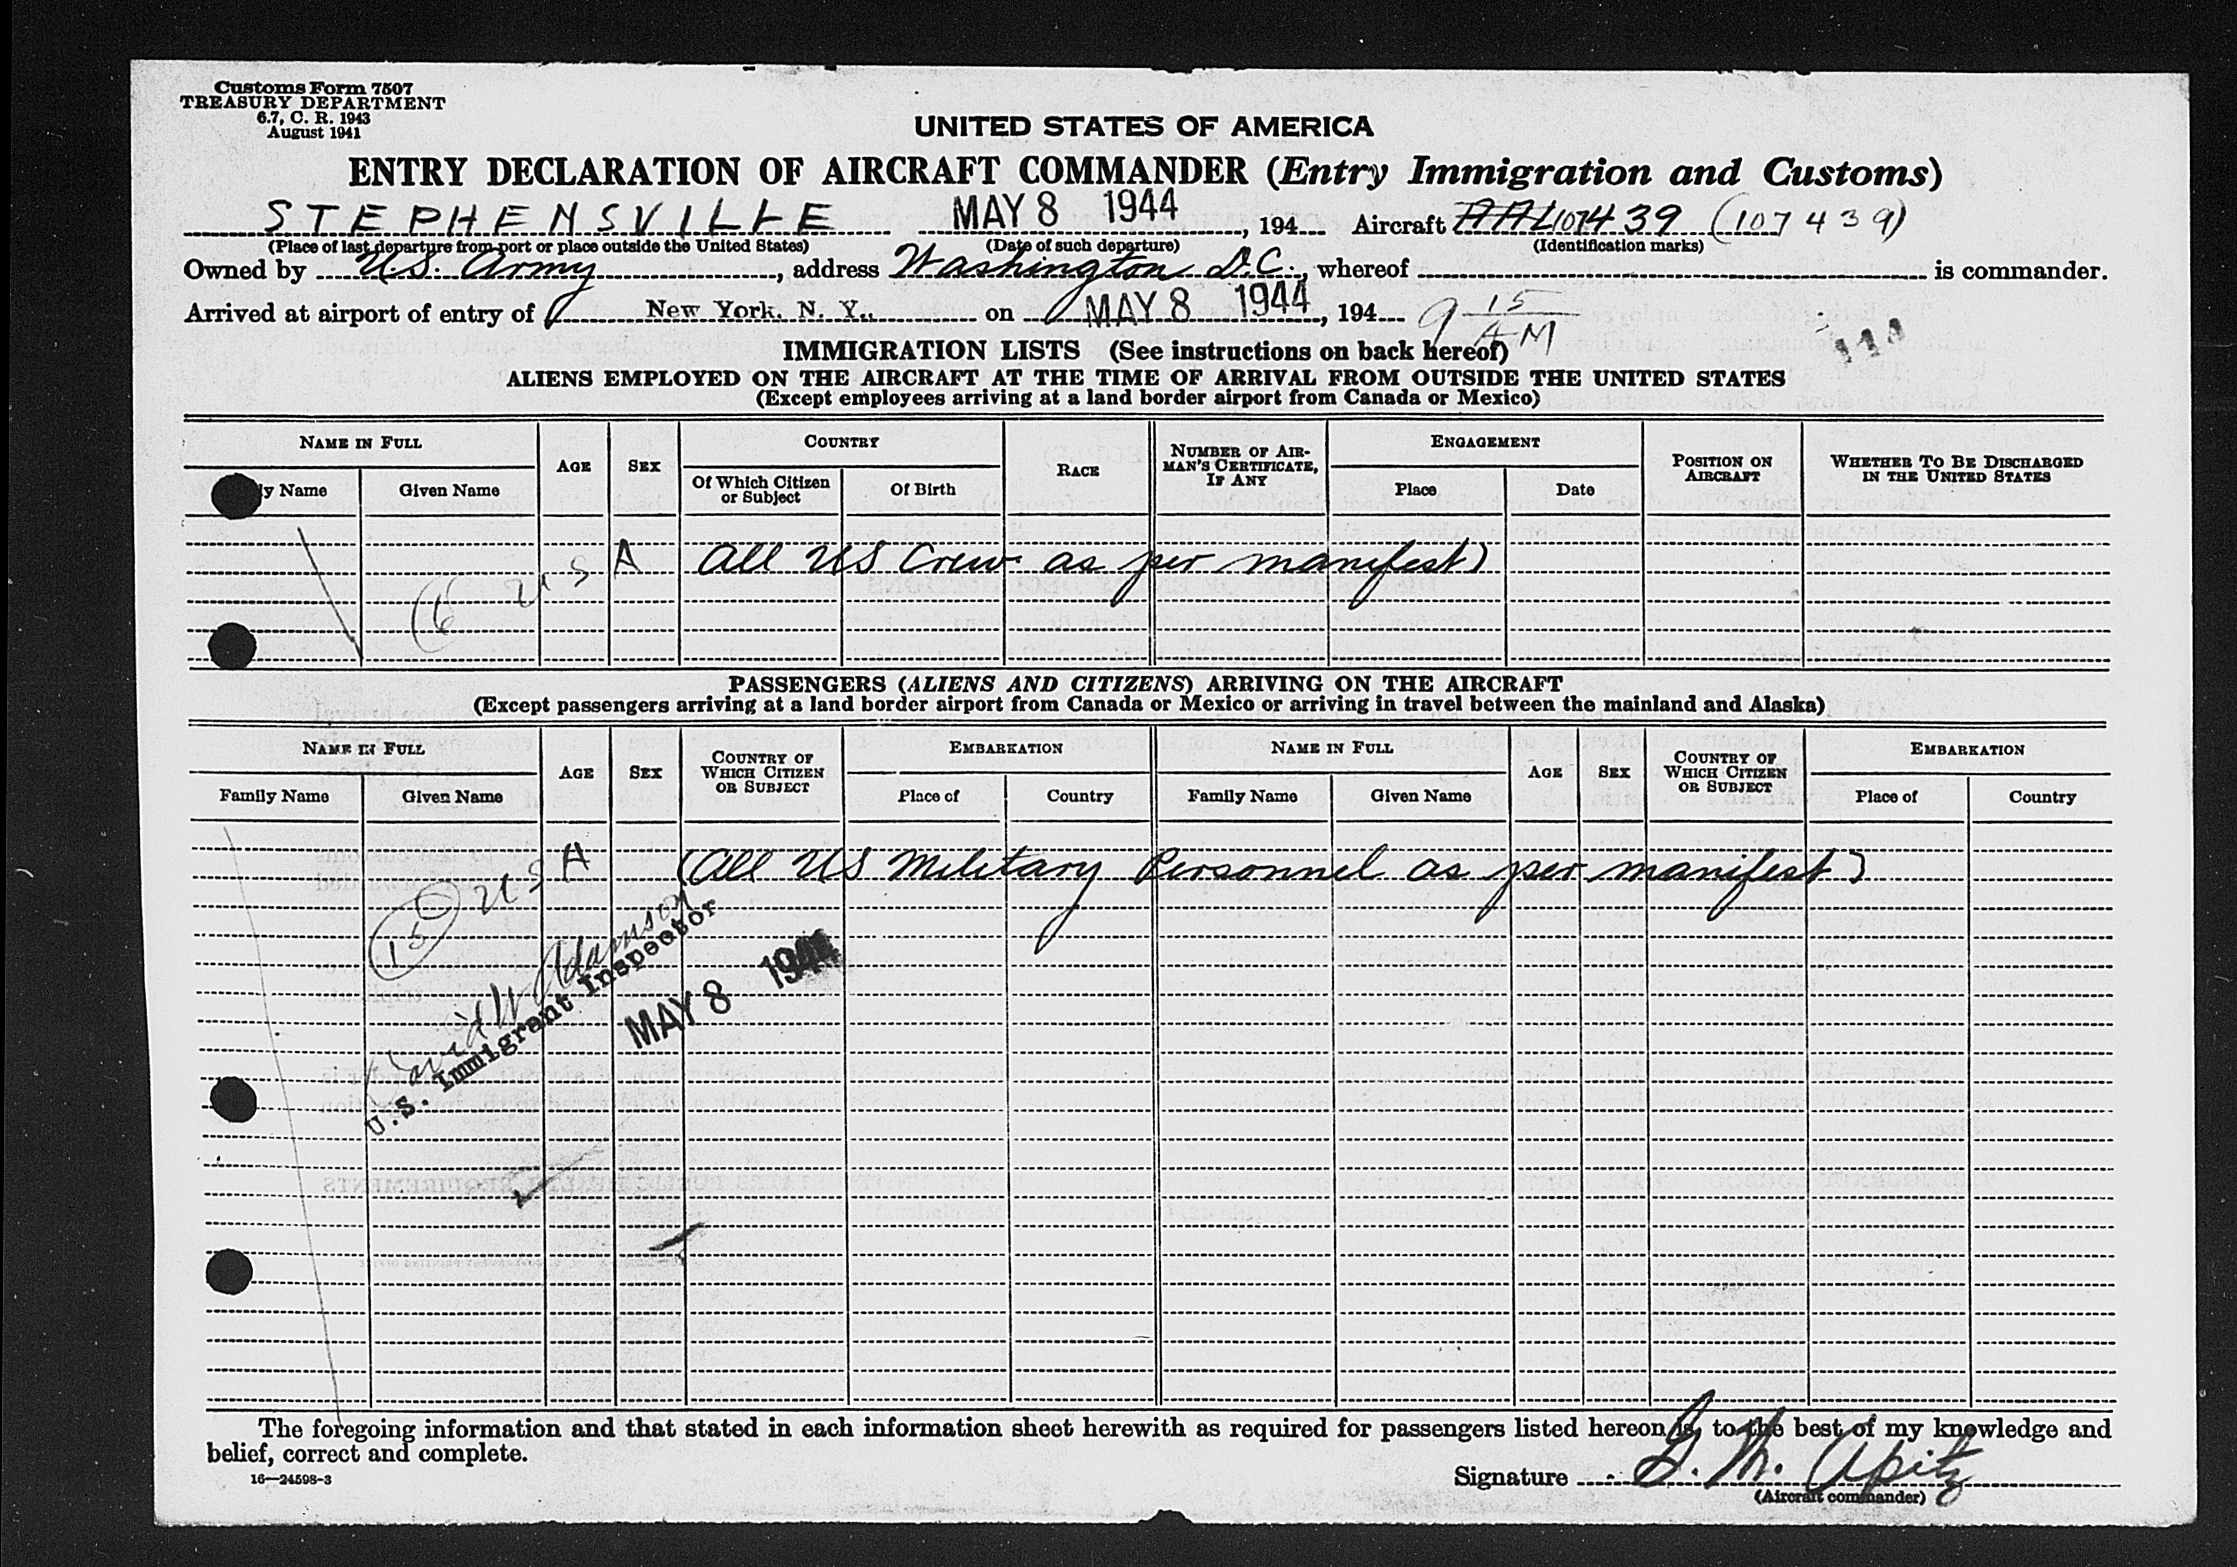 Customs Form 7507
TREASURY DEPARTMENT
6.7, C. R. 1943
August 1941
UNITED STATES OF AMERICA
ENTRY DECLARATION OF AIRCRAFT COMMANDER (Entry Immigration and Customs)
STEPHENSVILLE MAY 8 1944, 194 Aircraft AAL107439 (107439)
(Place of last departure from port or place outside the United States) (Date of such departure) (Identification marks)
Owned by U.S. Army, address Washington D.C., whereof is commander.
Arrived at airport of entry of New York, N. Y., on MAY 8 1944, 194 9 15 AM
IMMIGRATION LISTS (See instructions on back hereof)
ALIENS EMPLOYED ON THE AIRCRAFT AT THE TIME OF ARRIVAL FROM OUTSIDE THE UNITED STATES
(Except employees arriving at a land border airport from Canada or Mexico)
NAME IN FULL AGE SEX COUNTRY RACE NUMBER OF AIRMAN'S CERTIFICATE, IF ANY ENGAGEMENT POSITION ON AIRCRAFT WHETHER TO BE DISCHARGED IN THE UNITED STATES
y Name Given Name Of Which Citizen or Subject Of Birth Place Date
(6 USA All US Crew as per manifest)
PASSENGERS (ALIENS AND CITIZENS) ARRIVING ON THE AIRCRAFT
(Except passengers arriving at a land border airport from Canada or Mexico or arriving in travel between the mainland and Alaska)
NAME IN FULL AGE SEX COUNTRY OF WHICH CITIZEN OR SUBJECT EMBARKATION NAME IN FULL AGE SEX COUNTRY OF WHICH CITIZEN OR SUBJECT EMBARKATION
Family Name Given Name Place of Country Family Name Given Name Place of Country
15 USA (All US Military Personnel as per manifest)
David W Adamson
U.S. Immigrant Inspector
MAY 8 1944
The foregoing information and that stated in each information sheet herewith as required for passengers listed hereon is, to the best of my knowledge and
belief, correct and complete.
16—24598-3
Signature G. M. Apitz
(Aircraft commander)